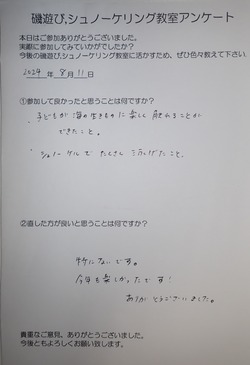 磯遊び,シュノーケリング教室アンケート
本日はご参加ありがとうございました。
実際に参加してみていかがでしたか？
今後の磯遊び,シュノーケリング教室に活かすため、ぜひ色々教えて下さい。
2024 年 8 月 11 日
①参加して良かったと思うことは何ですか？
・子どもが海の生きものに楽しく触れることが
できたこと。
・シュノーケルでたくさん泳げたこと。
②直した方が良いと思うことは何ですか？
特にないです。
今年も楽しかったです！
ありがとうございました。
貴重なご意見。ありがとうございました。
今後ともよろしくお願い致します。